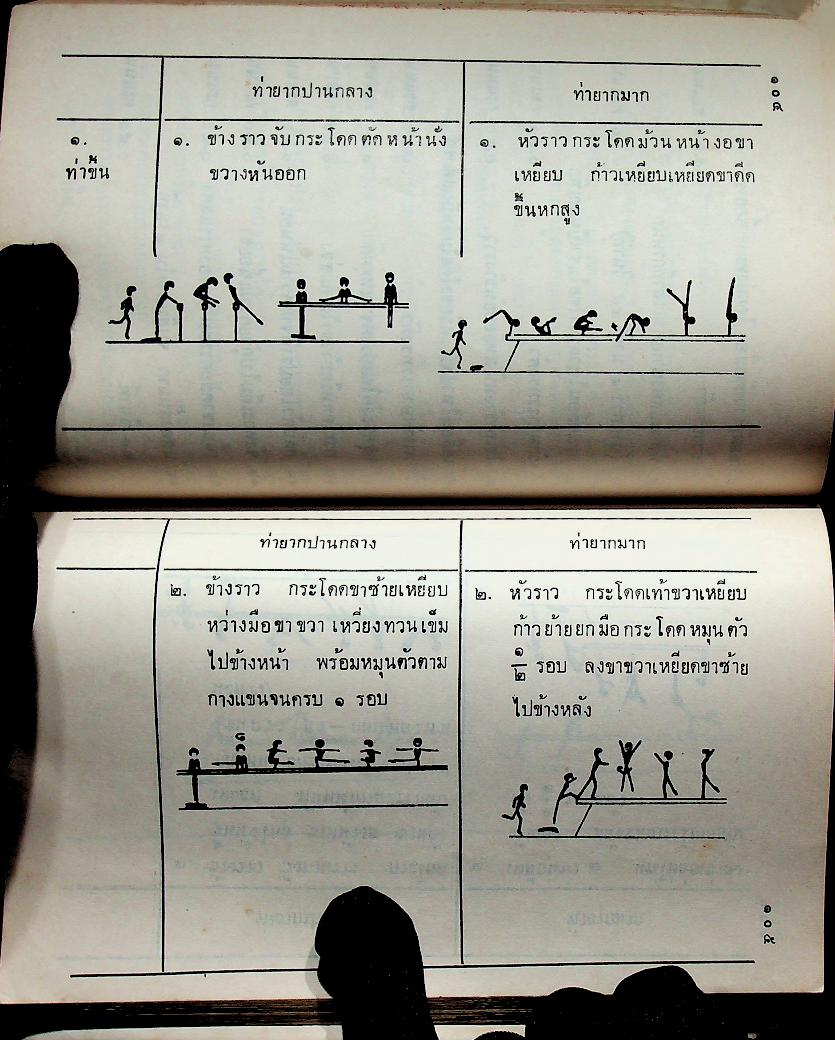 ท่ายากปานกลาง
ท่ายากมาก
๑.
ท่าขึ้น
๑. ข้างราวจับกระโดดตัดหน้านั่ง
ขวางหันออก
๑. หัวราวกระโดดม้วนหน้างอขา
เหยียบ ก้าวเหยียบเหยียดขาดีด
ขึ้นหกสูง
๑๐๘
ท่ายากปานกลาง
ท่ายากมาก
๒. ข้างราว กระโดดขาซ้ายเหยียบ
หว่างมือขาขวา เหวี่ยงทวนเข็ม
ไปข้างหน้า พร้อมหมุนตัวตาม
กางแขนจนครบ ๑ รอบ
๒. หัวราว กระโดดเท้าขวาเหยียบ
ก้าวย้ายยกมือกระโดดหมุนตัว
๑/๒ รอบ ลงขาขวาเหยียดขาซ้าย
ไปข้างหลัง
๑๐๙